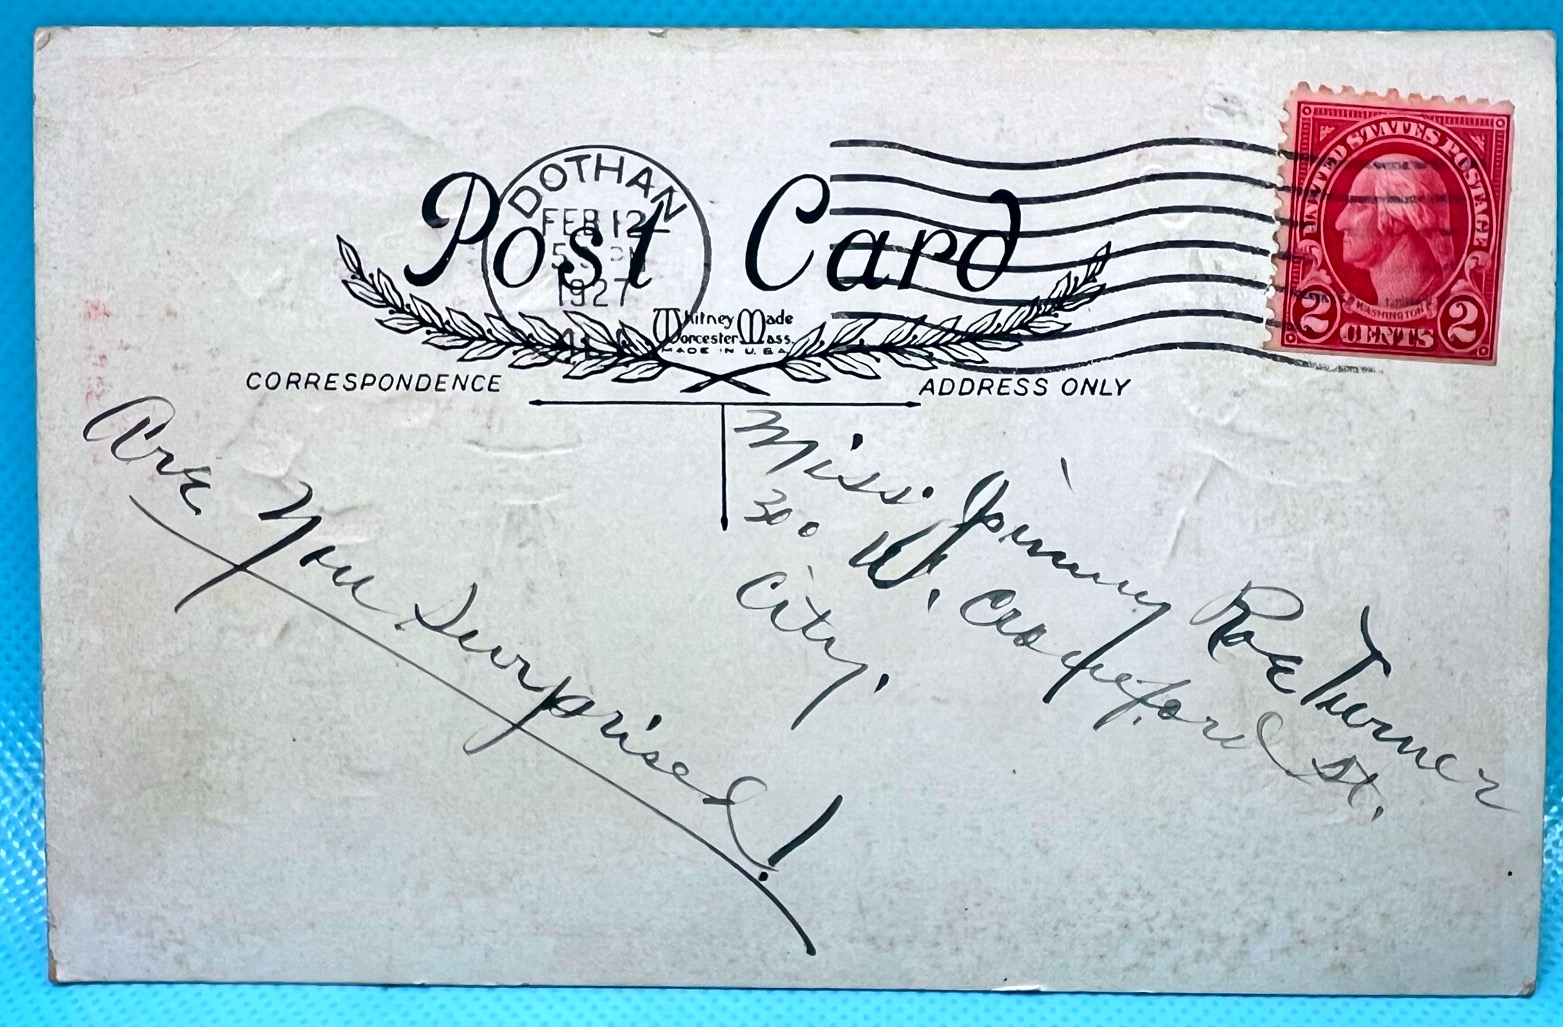 Post Card
DOTHAN
FEB 12
1927
AL
UNITED STATES POSTAGE
WASHINGTON
2 CENTS 2
Whitney Made
Worcester Mass.
MADE IN U.S.A.
CORRESPONDENCE
ADDRESS ONLY
Are You Surprised!
Miss. Jimmy Rae Turner
300 W. Crawford St.
City.